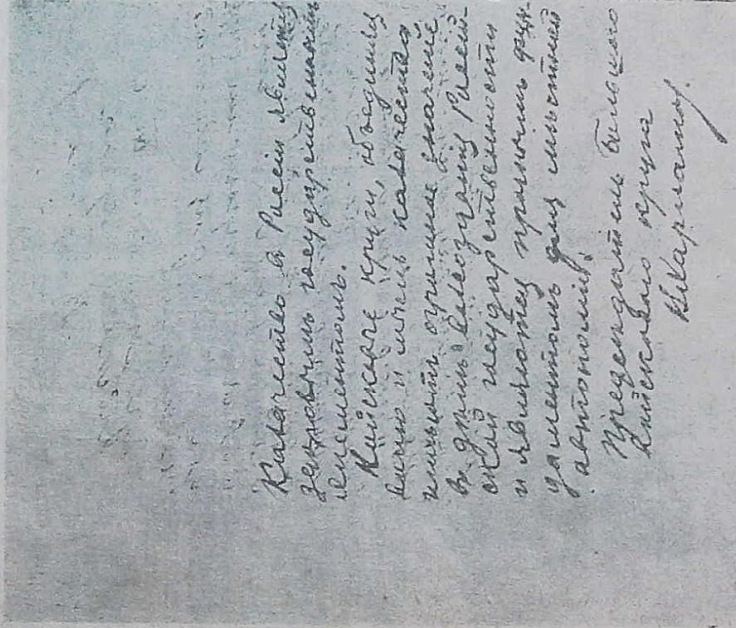 Казачество в Россiи является
здоровымъ государственнымъ
элементомъ.
Войсковые круги, объединяя
волю и мысль казачества
имѣютъ огромное значенiе
въ дѣлѣ возсозданiя Россiй-
ской государственности
и являются прочнымъ фун-
даментомъ для мѣстной
автономiи.
Предсѣдатель Большого
Войскового круга
В. Харламовъ.